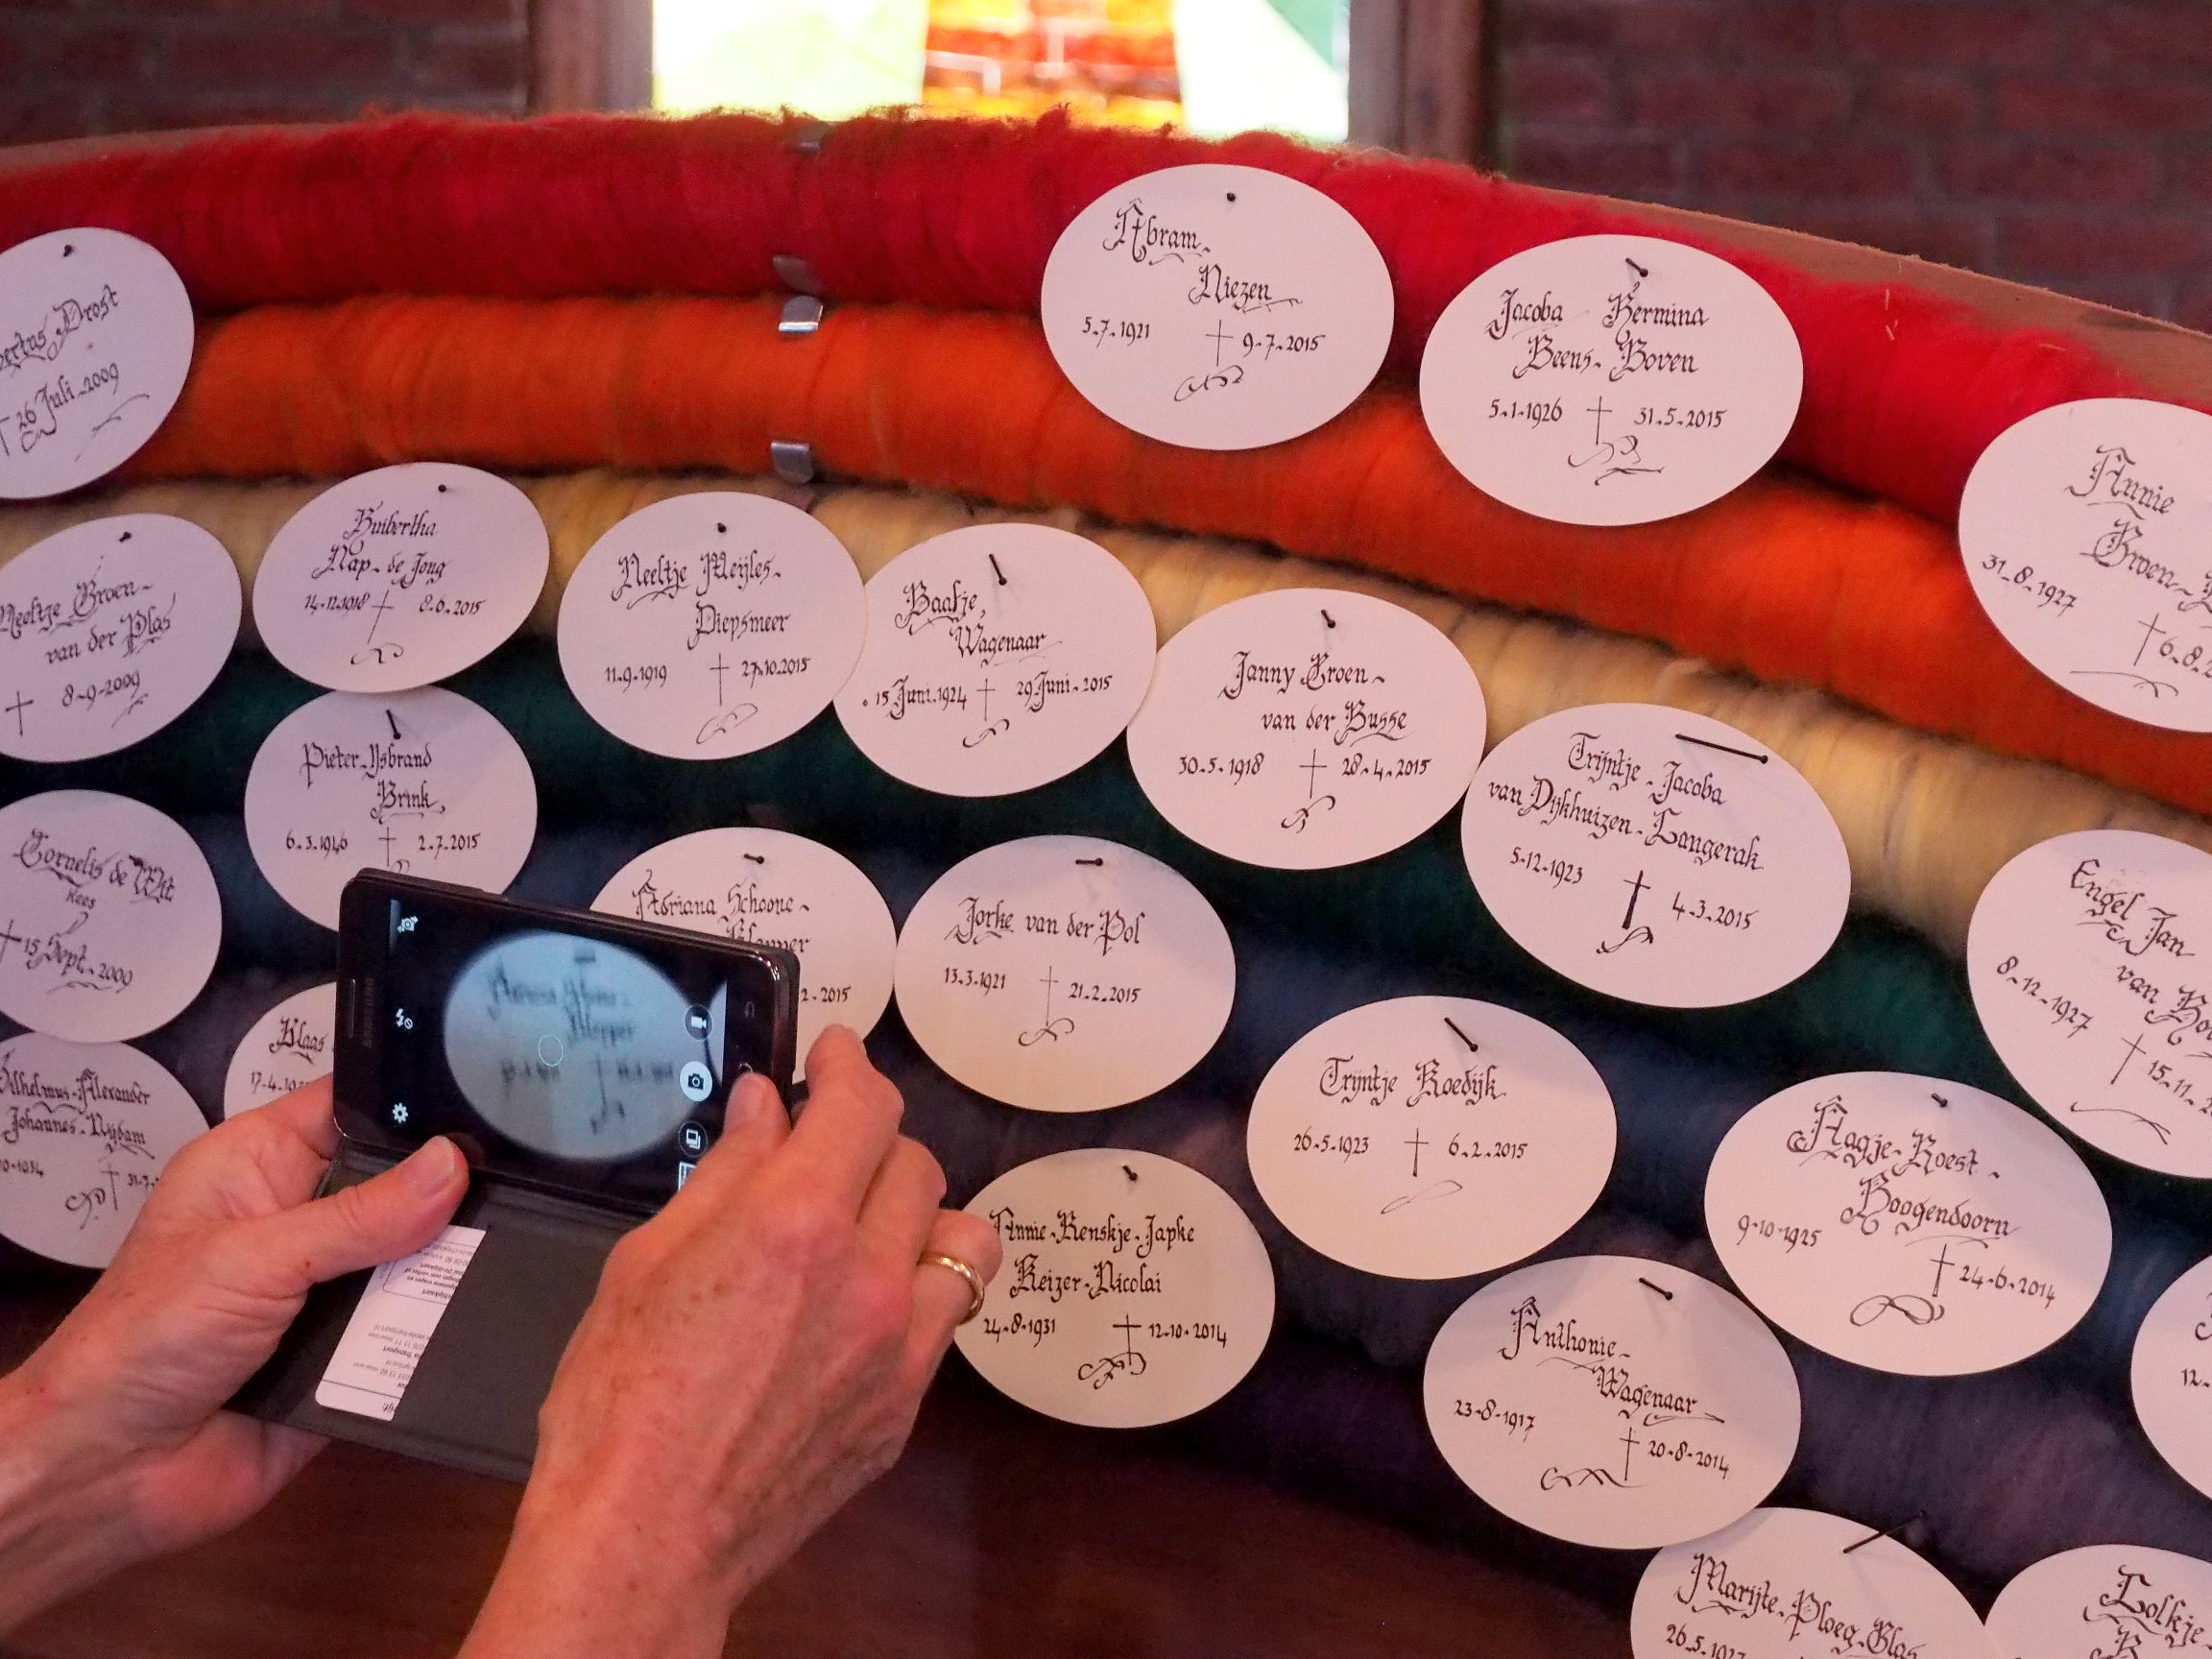 Abram
Niezen
5.7.1921 9-7-2015
Jacoba Hermina
Beens-Boven
5.1.1926 31.5.2015
Drost
26 Juli 2009
Annie
Groen-
31-8-1927
6-8-2
Huibertha
Nap-de Jong
14-12-1918 8.6.2015
Neeltje Meijles-
Diepsmeer
11.9.1919 27.10.2015
Baafje
Wagenaar
15 Juni 1924 29 Juni 2015
Neeltje Groen-
van der Plas
8-9-2009
Janny Groen-
van der Busse
30.5.1918 28.4.2015
Pieter-IJsbrand
Brink
6.3.1946 2.7.2015
Trijntje-Jacoba
van Dijkhuizen-Langerak
5-12-1923 4-3.2015
Cornelis de Wit
Kees
15 Sept. 2009
Adriana Schoone-
Klepper
2.2015
Jorke van der Pol
13.3.1921 21.2.2015
Engel Jan
van
8-12-1927
15-11-2
Klaas
17-4-19
Wilhelmus-Alexander
Johannes-Nijdam
31-7-
SAMSUNG
Trijntje Koedijk
26-5-1923 6-2-2015
Aagje-Roest-
Hoogendoorn
9-10-1925 24-6-2014
Annie-Renskje-Japke
Keizer-Nicolai
24-8-1931 12-10-2014
Anthonie-
Wagenaar
23-8-1917 20-8-2014
12-
Marijte-Ploeg-Glas
26.5.1927
Lolkje-